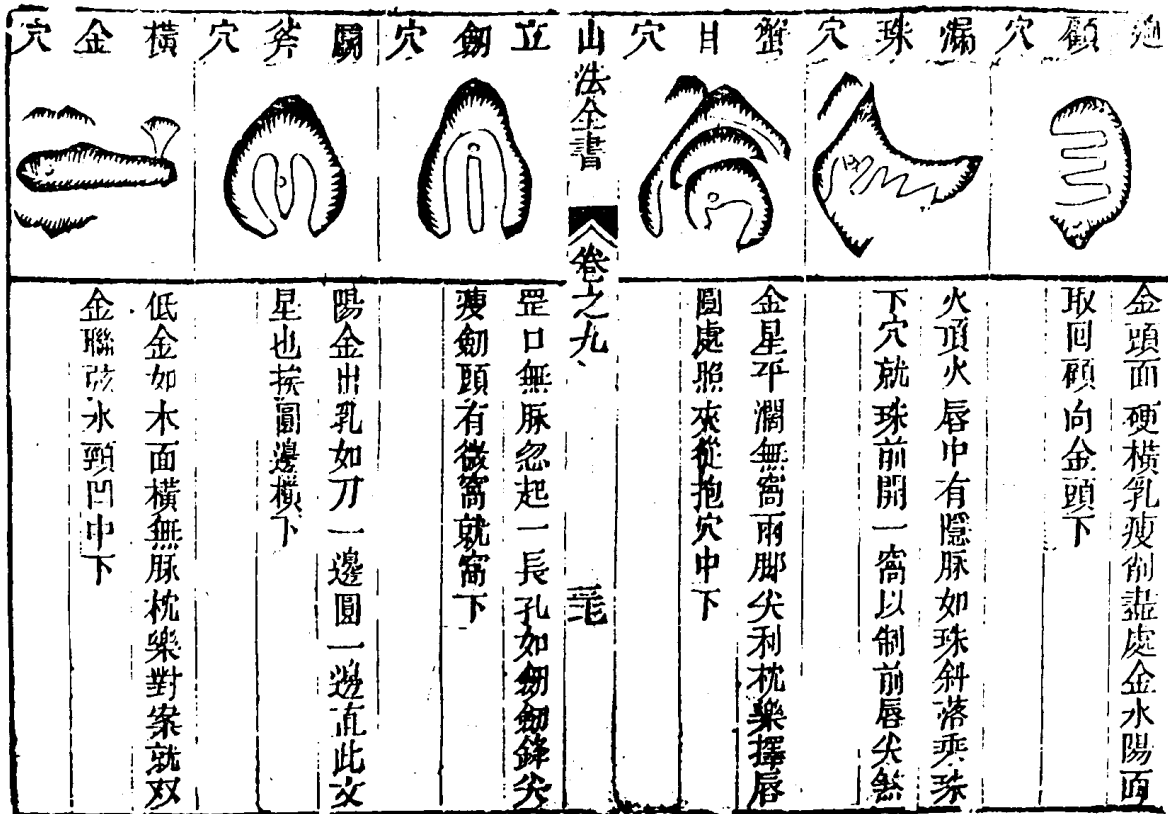 廻顧穴
金頭面硬橫乳瘦削盡處金水陽面
取回顧向金頭下
漏珠穴
火頂火唇中有隱脉如珠斜落乘珠
下穴就珠前開一窩以制前唇尖煞
蟹目穴
金星平濶無窩兩脚尖利枕樂擇唇
圓處照夾從抱穴中下
山法全書
卷之九
立劒穴
罡口無脉忽起一長孔如劒劒鋒尖
瘦劒頭有微窩就窩下
鬭斧穴
陽金出乳如刀一邊圓一邊直此文
星也挨圓邊橫下
橫金穴
低金如木面橫無脉枕樂對案就双
金聯弦水頸凹中下